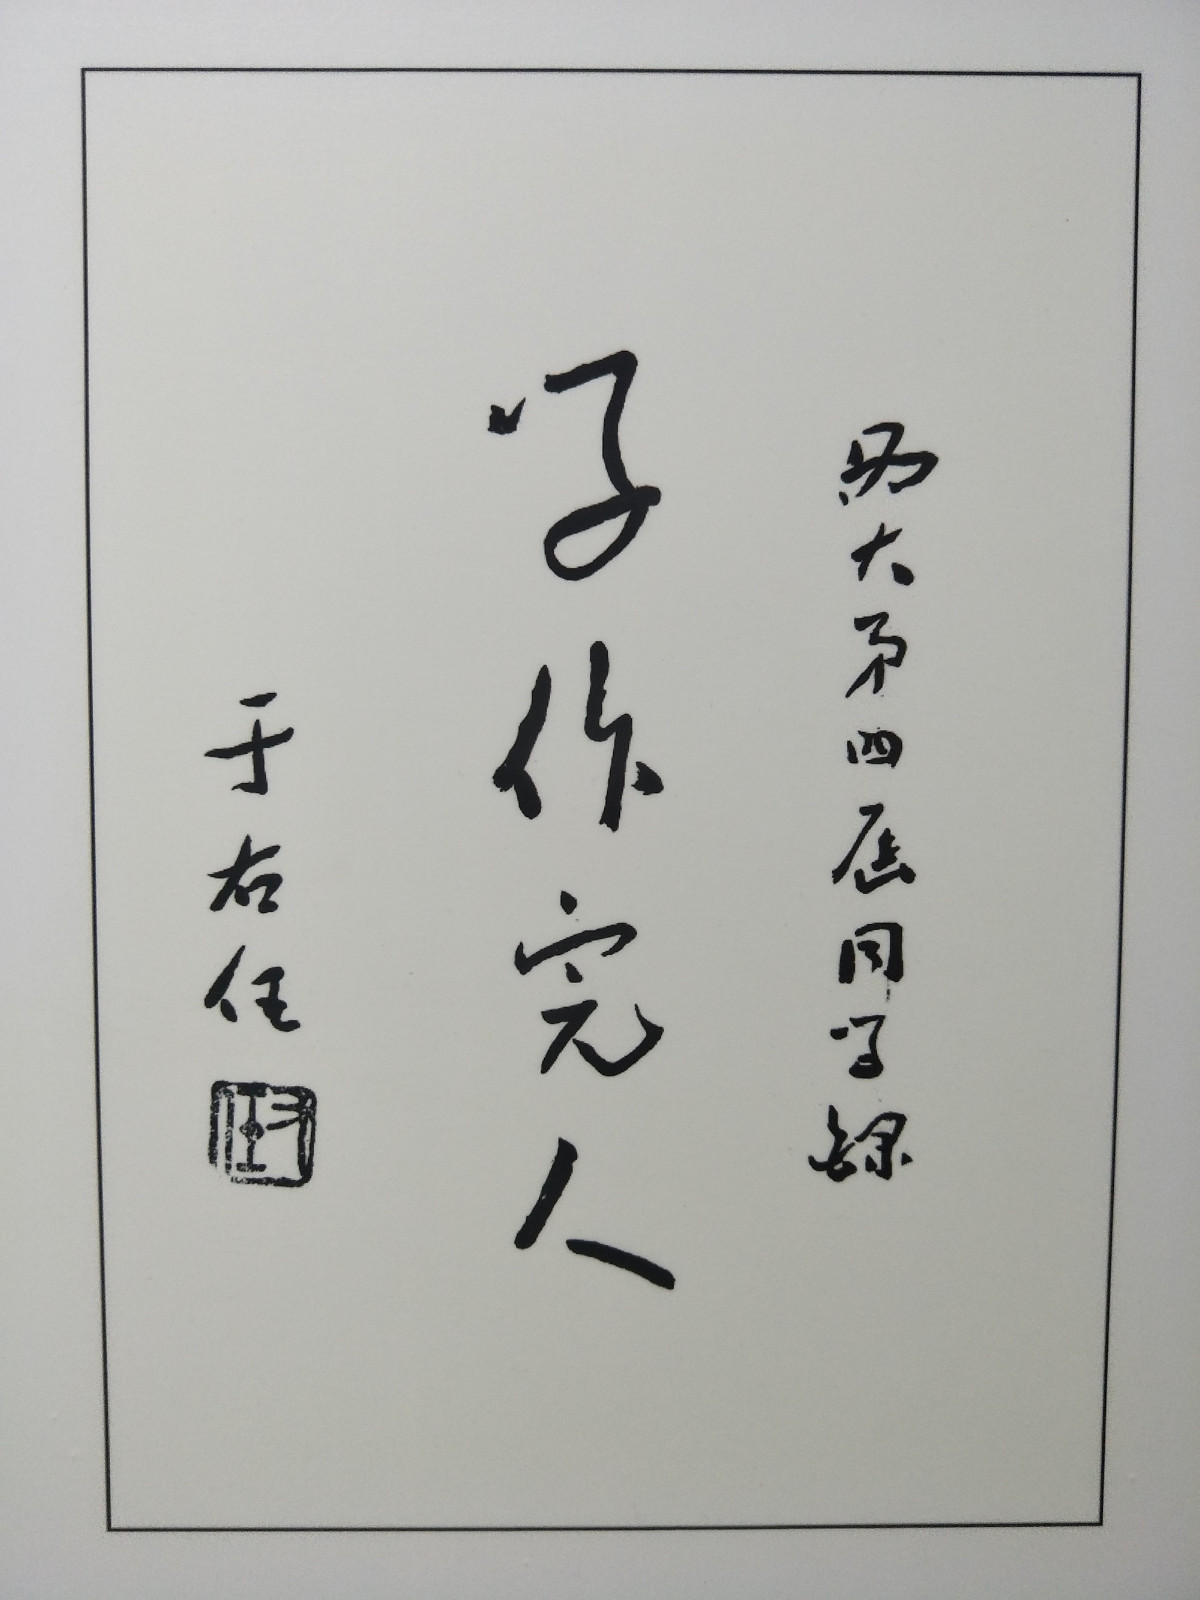 西大第四屆同學錄
學作完人
于右任
右任